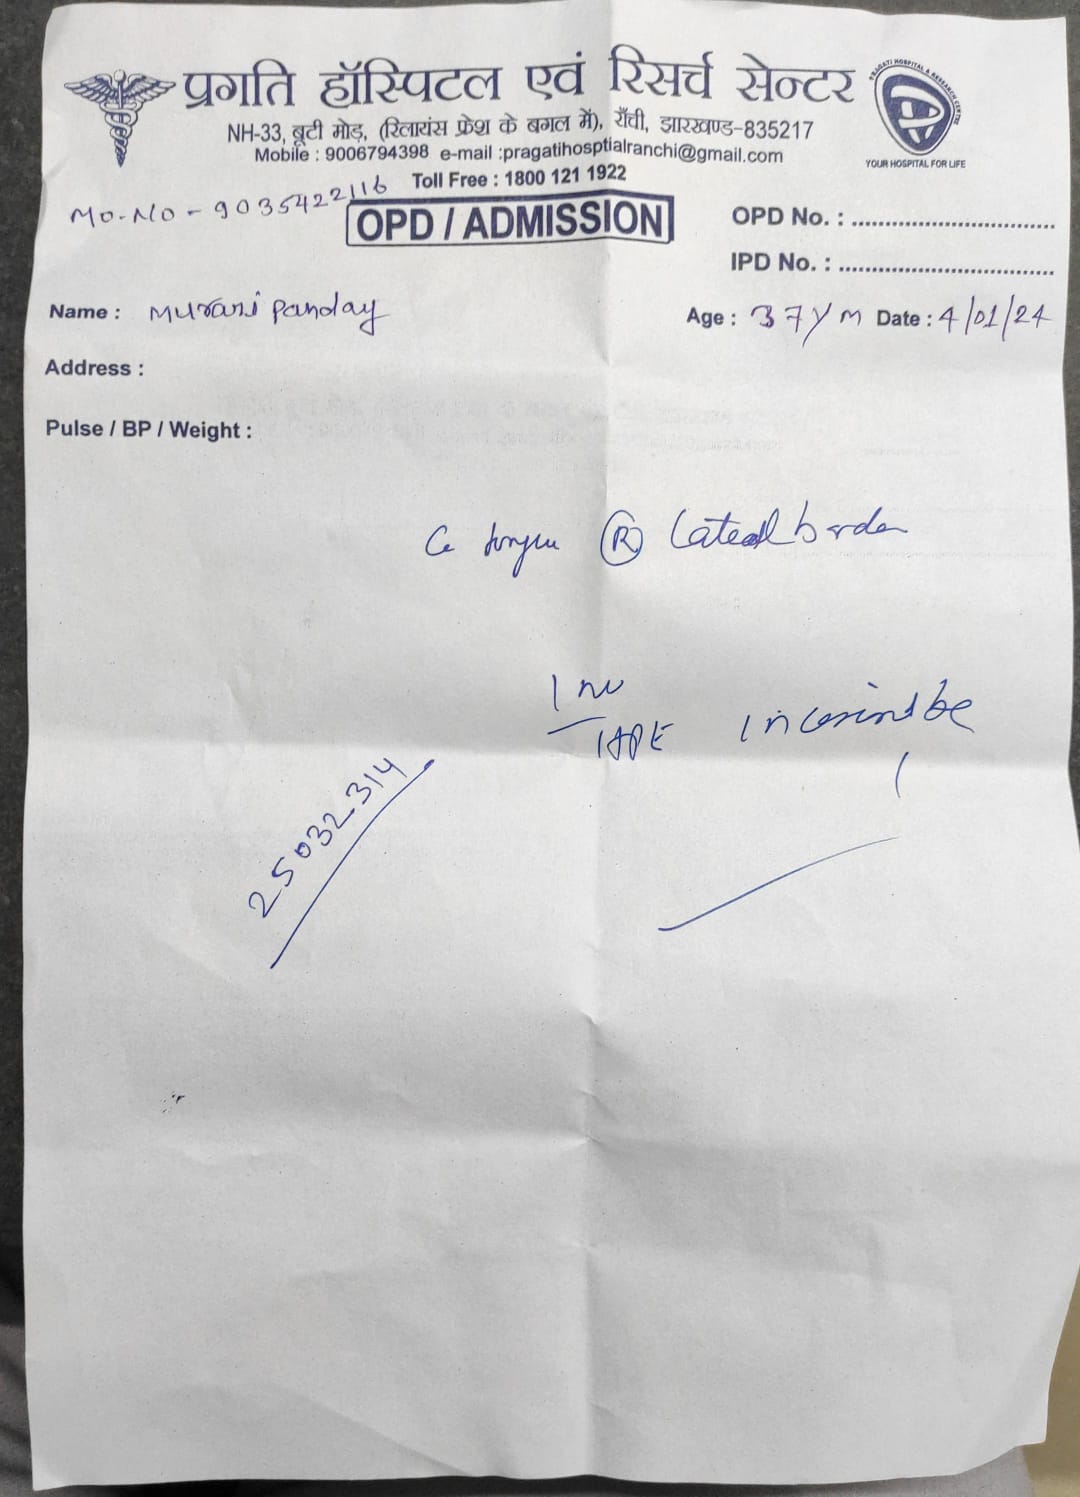 प्रगति हॉस्पिटल एवं रिसर्च सेन्टर
NH-33, बूटी मोड़, (रिलायंस फ्रेश के बगल में), राँची, झारखण्ड-835217
Mobile : 9006794398 e-mail :pragatihosptialranchi@gmail.com
Toll Free : 1800 121 1922
PRAGATI HOSPITAL & RESEARCH CENTRE
YOUR HOSPITAL FOR LIFE
MO-NO - 9035422116
OPD / ADMISSION
OPD No. : ................................
IPD No. : ..................................
Name : Murari Panday
Age : 37Y M Date : 4/01/24
Address :
Pulse / BP / Weight :
Ca tongue R Lateral border
25032314